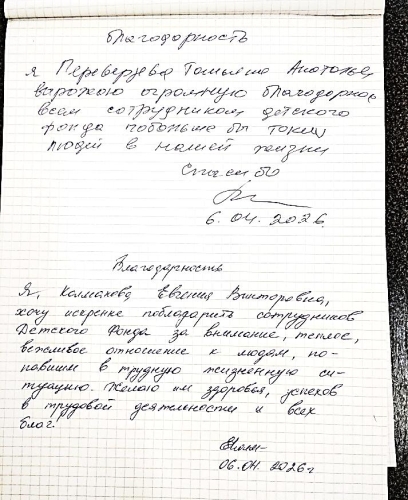 Благодарность
Я Переверзева Татьяна Анатольев
выражаю огромную благодарнос
всем сотрудникам детского
фонда побольше бы таких
людей в нашей жизни
Спасибо
6.04.2026
Благодарность
Я, Колпакова Евгения Викторовна,
хочу искренне поблагодарить сотрудников
Детского Фонда за внимание, теплое,
вежливое отношение к людям, по-
павшим в трудную жизненную си-
туацию. Желаю им здоровья, успехов
в трудовой деятельности и всех
благ.
06.04.2026г